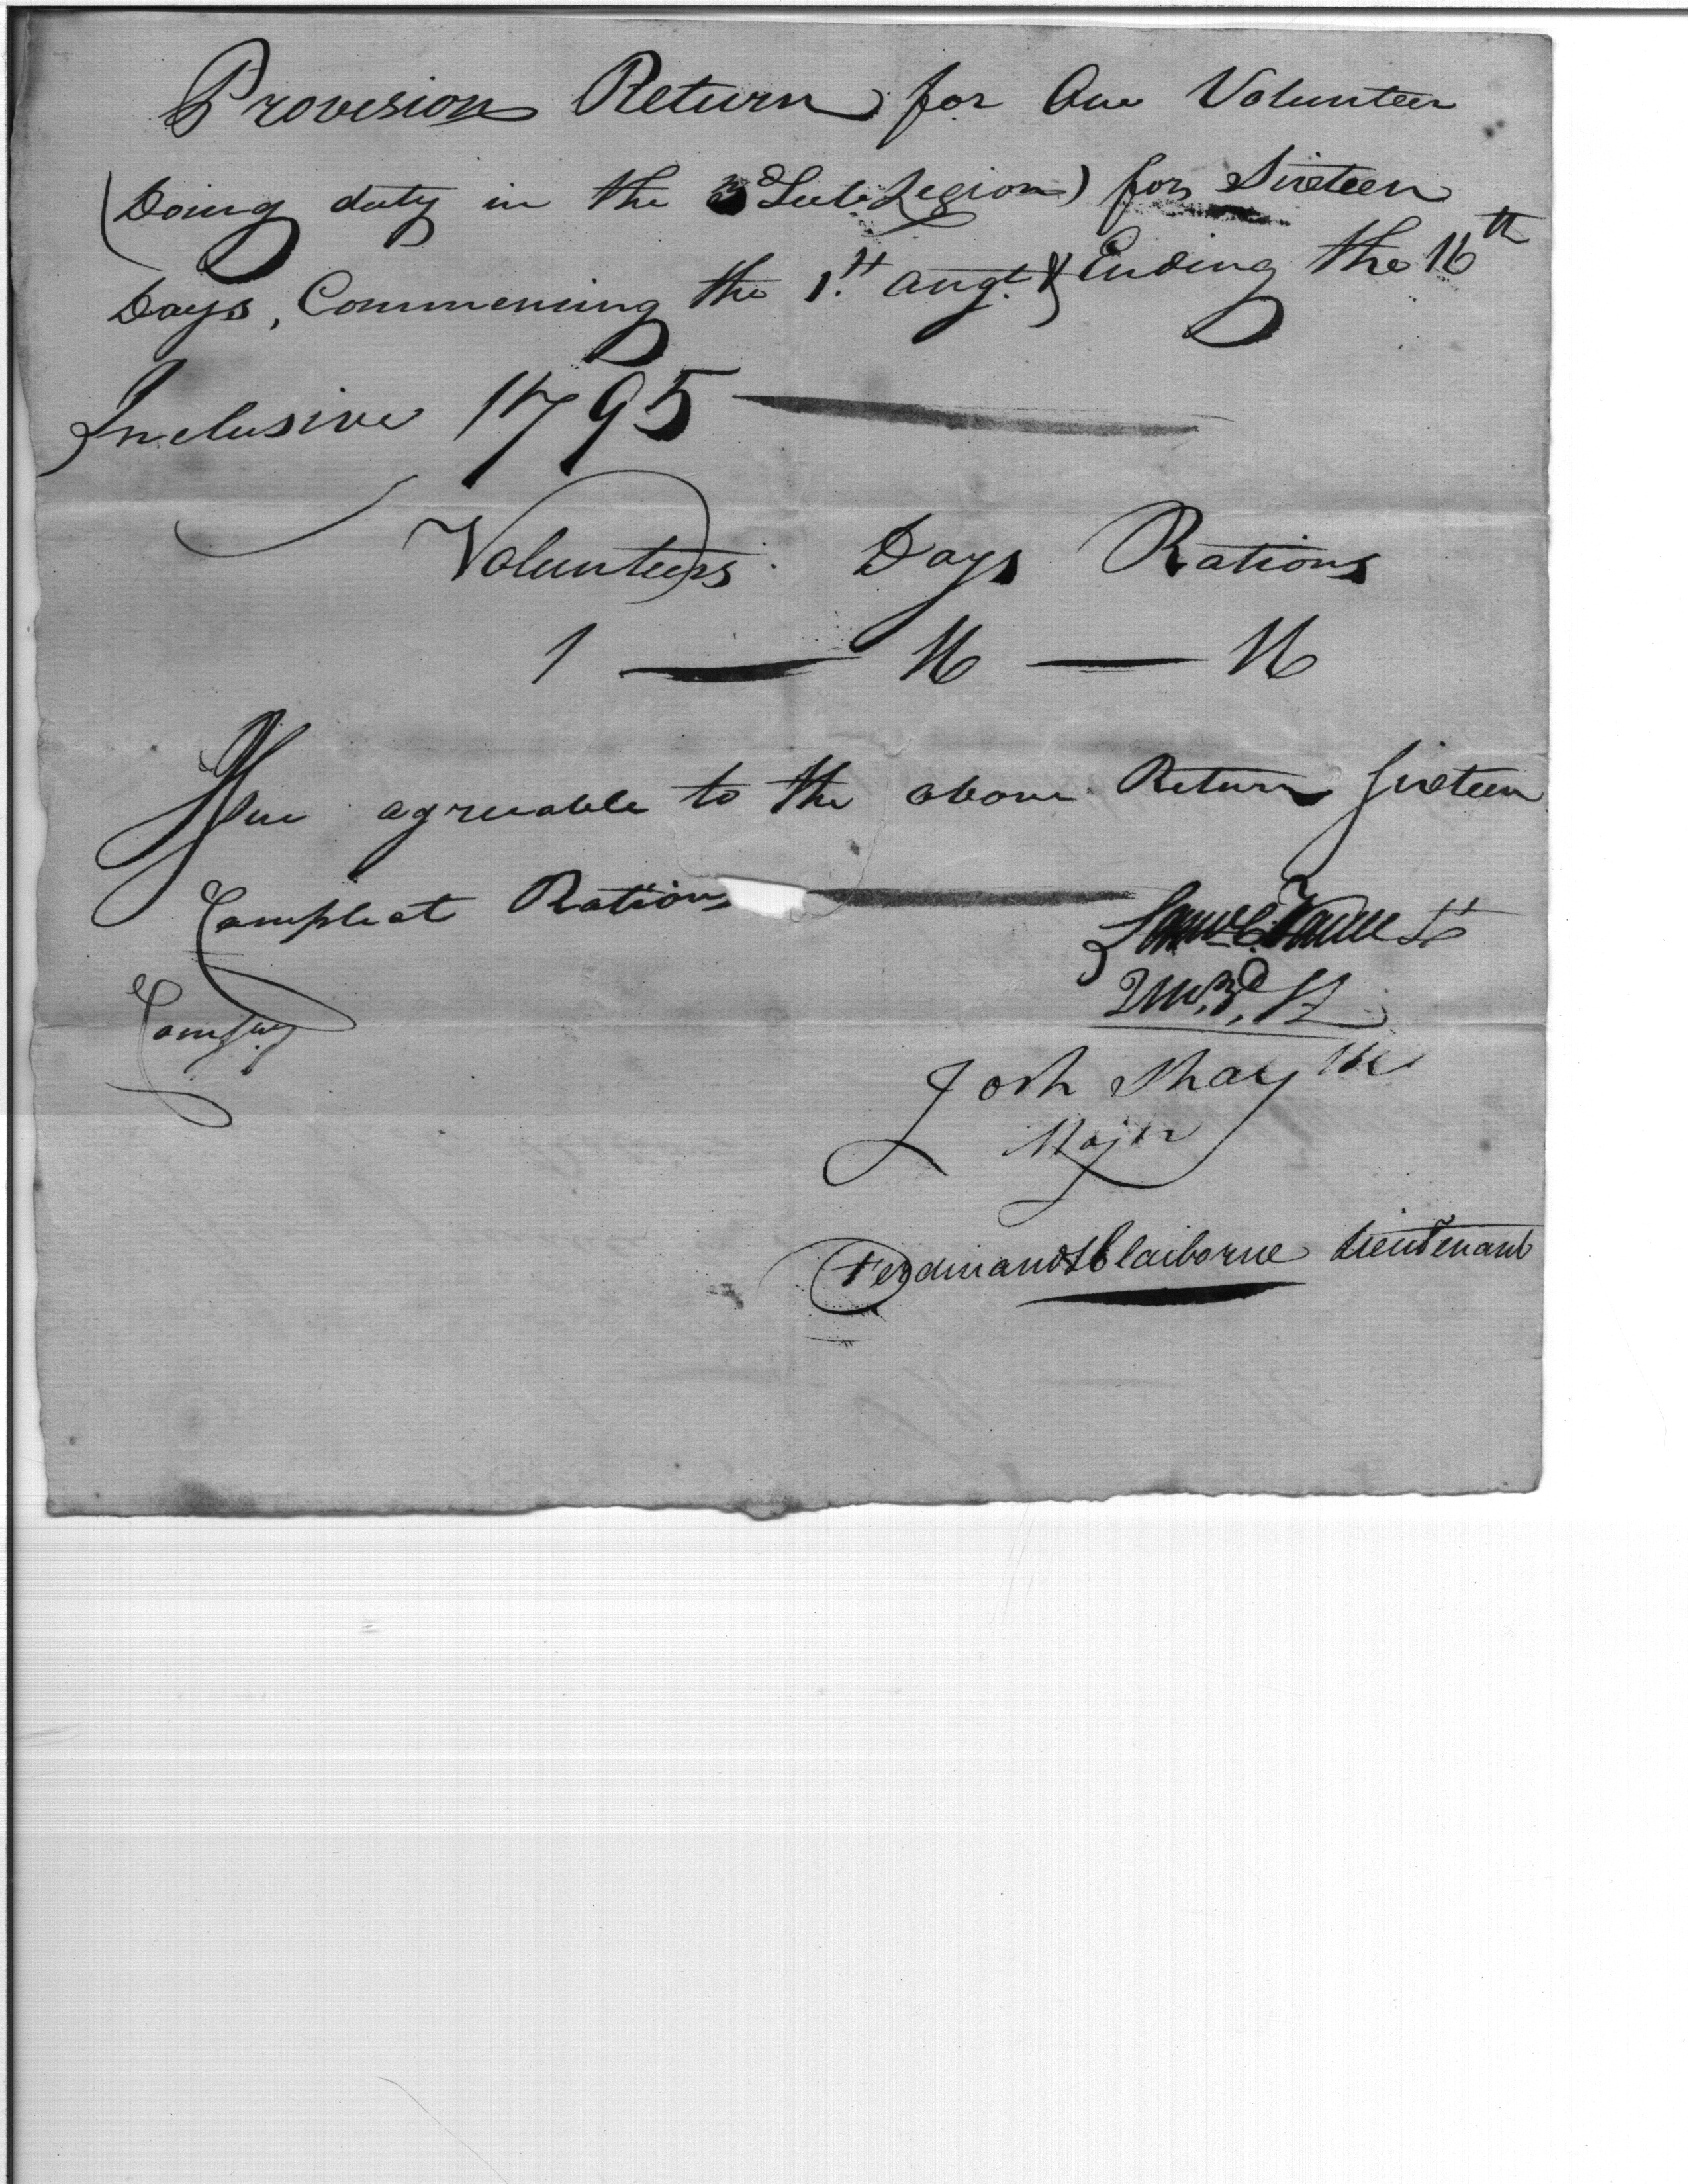 Provision Return for One Volunteer
(Doing duty in the 3d Sub Legion) for Sixteen
Days, Commencing the 1st. Augt. & Ending the 16th
Inclusive 1795
Volunteers Days Rations
1 — 16 — 16
Issue agreeable to the above Return Sixteen
Compleat Rations
Saml. C. Vance Lt
QM. 3d. SL
Comsy
Josh Shaylor
Major
Ferdinand L Claiborne Lieutenant